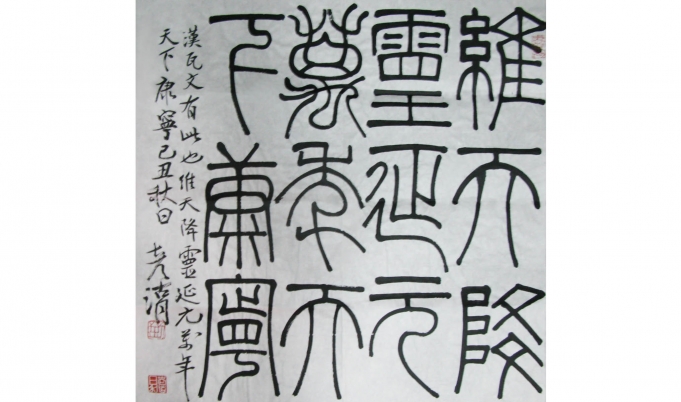 維天降
靈延元
萬年天
下康寧
漢瓦文有此也維天降靈延元萬年
天下康寧己丑秋日